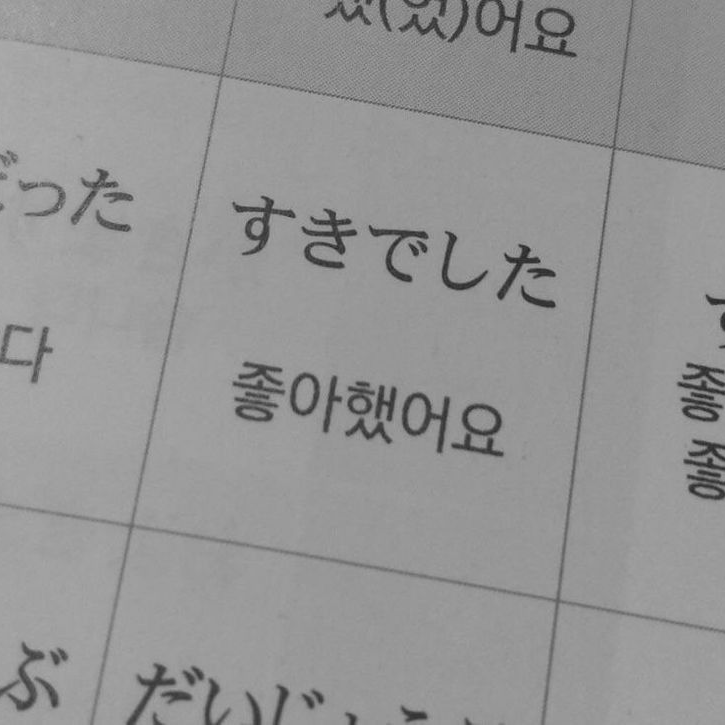 았(었)어요
だった
すきでした
다
좋아했어요
좋
좋
ぶ